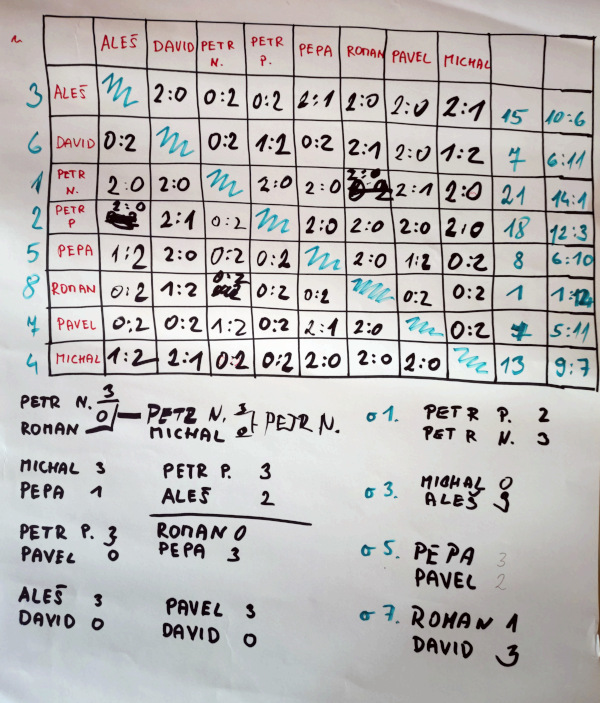 ALEŠ DAVID PETR N. PETR P. PEPA ROMAN PAVEL MICHAL
3 ALEŠ 2:0 0:2 0:2 2:1 2:0 2:0 2:1 15 10:6
6 DAVID 0:2 0:2 1:2 0:2 2:1 2:0 1:2 7 6:11
1 PETR N. 2:0 2:0 2:0 2:0 2:0 2:1 2:0 21 14:1
2 PETR P 2:0 2:1 0:2 2:0 2:0 2:0 2:0 18 12:3
5 PEPA 1:2 2:0 0:2 0:2 2:0 1:2 0:2 8 6:10
8 ROMAN 0:2 1:2 0:2 0:2 0:2 0:2 0:2 1 1:
7 PAVEL 0:2 0:2 1:2 0:2 2:1 2:0 0:2 5:11
4 MICHAL 1:2 2:1 0:2 0:2 2:0 2:0 2:0 13 9:7
PETR N. 3
ROMAN 0
PETR N. 3
MICHAL 0
PETR N.
MICHAL 3
PEPA 1
PETR P. 3
ALEŠ 2
PETR P. 3
PAVEL 0
ROMAN 0
PEPA 3
ALEŠ 3
DAVID 0
PAVEL 3
DAVID 0
o 1. PETR P. 2
PETR N. 3
o 3. MICHAL 0
ALEŠ 3
o 5. PEPA 3
PAVEL 2
o 7. ROMAN 1
DAVID 3